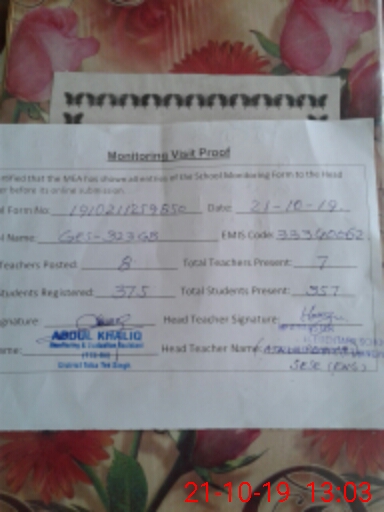 Monitoring Visit Proof
tified that the MEA has showed all entries of the School Monitoring Form to the Head
er before its online submission.
l Form No: 1910211259550 Date: 21-10-19
l Name: GES-323GB EMIS Code: 33340062
Teachers Posted: 8 Total Teachers Present: 7
Students Registered: 375 Total Students Present: 357
gnature: Head Teacher Signature:
ABDUL KHALIQ
Monitoring & Evaluation Assistant
District Toba Tek Singh
ame: Head Teacher Name:
SESE (ENG)
21-10-19 13:03